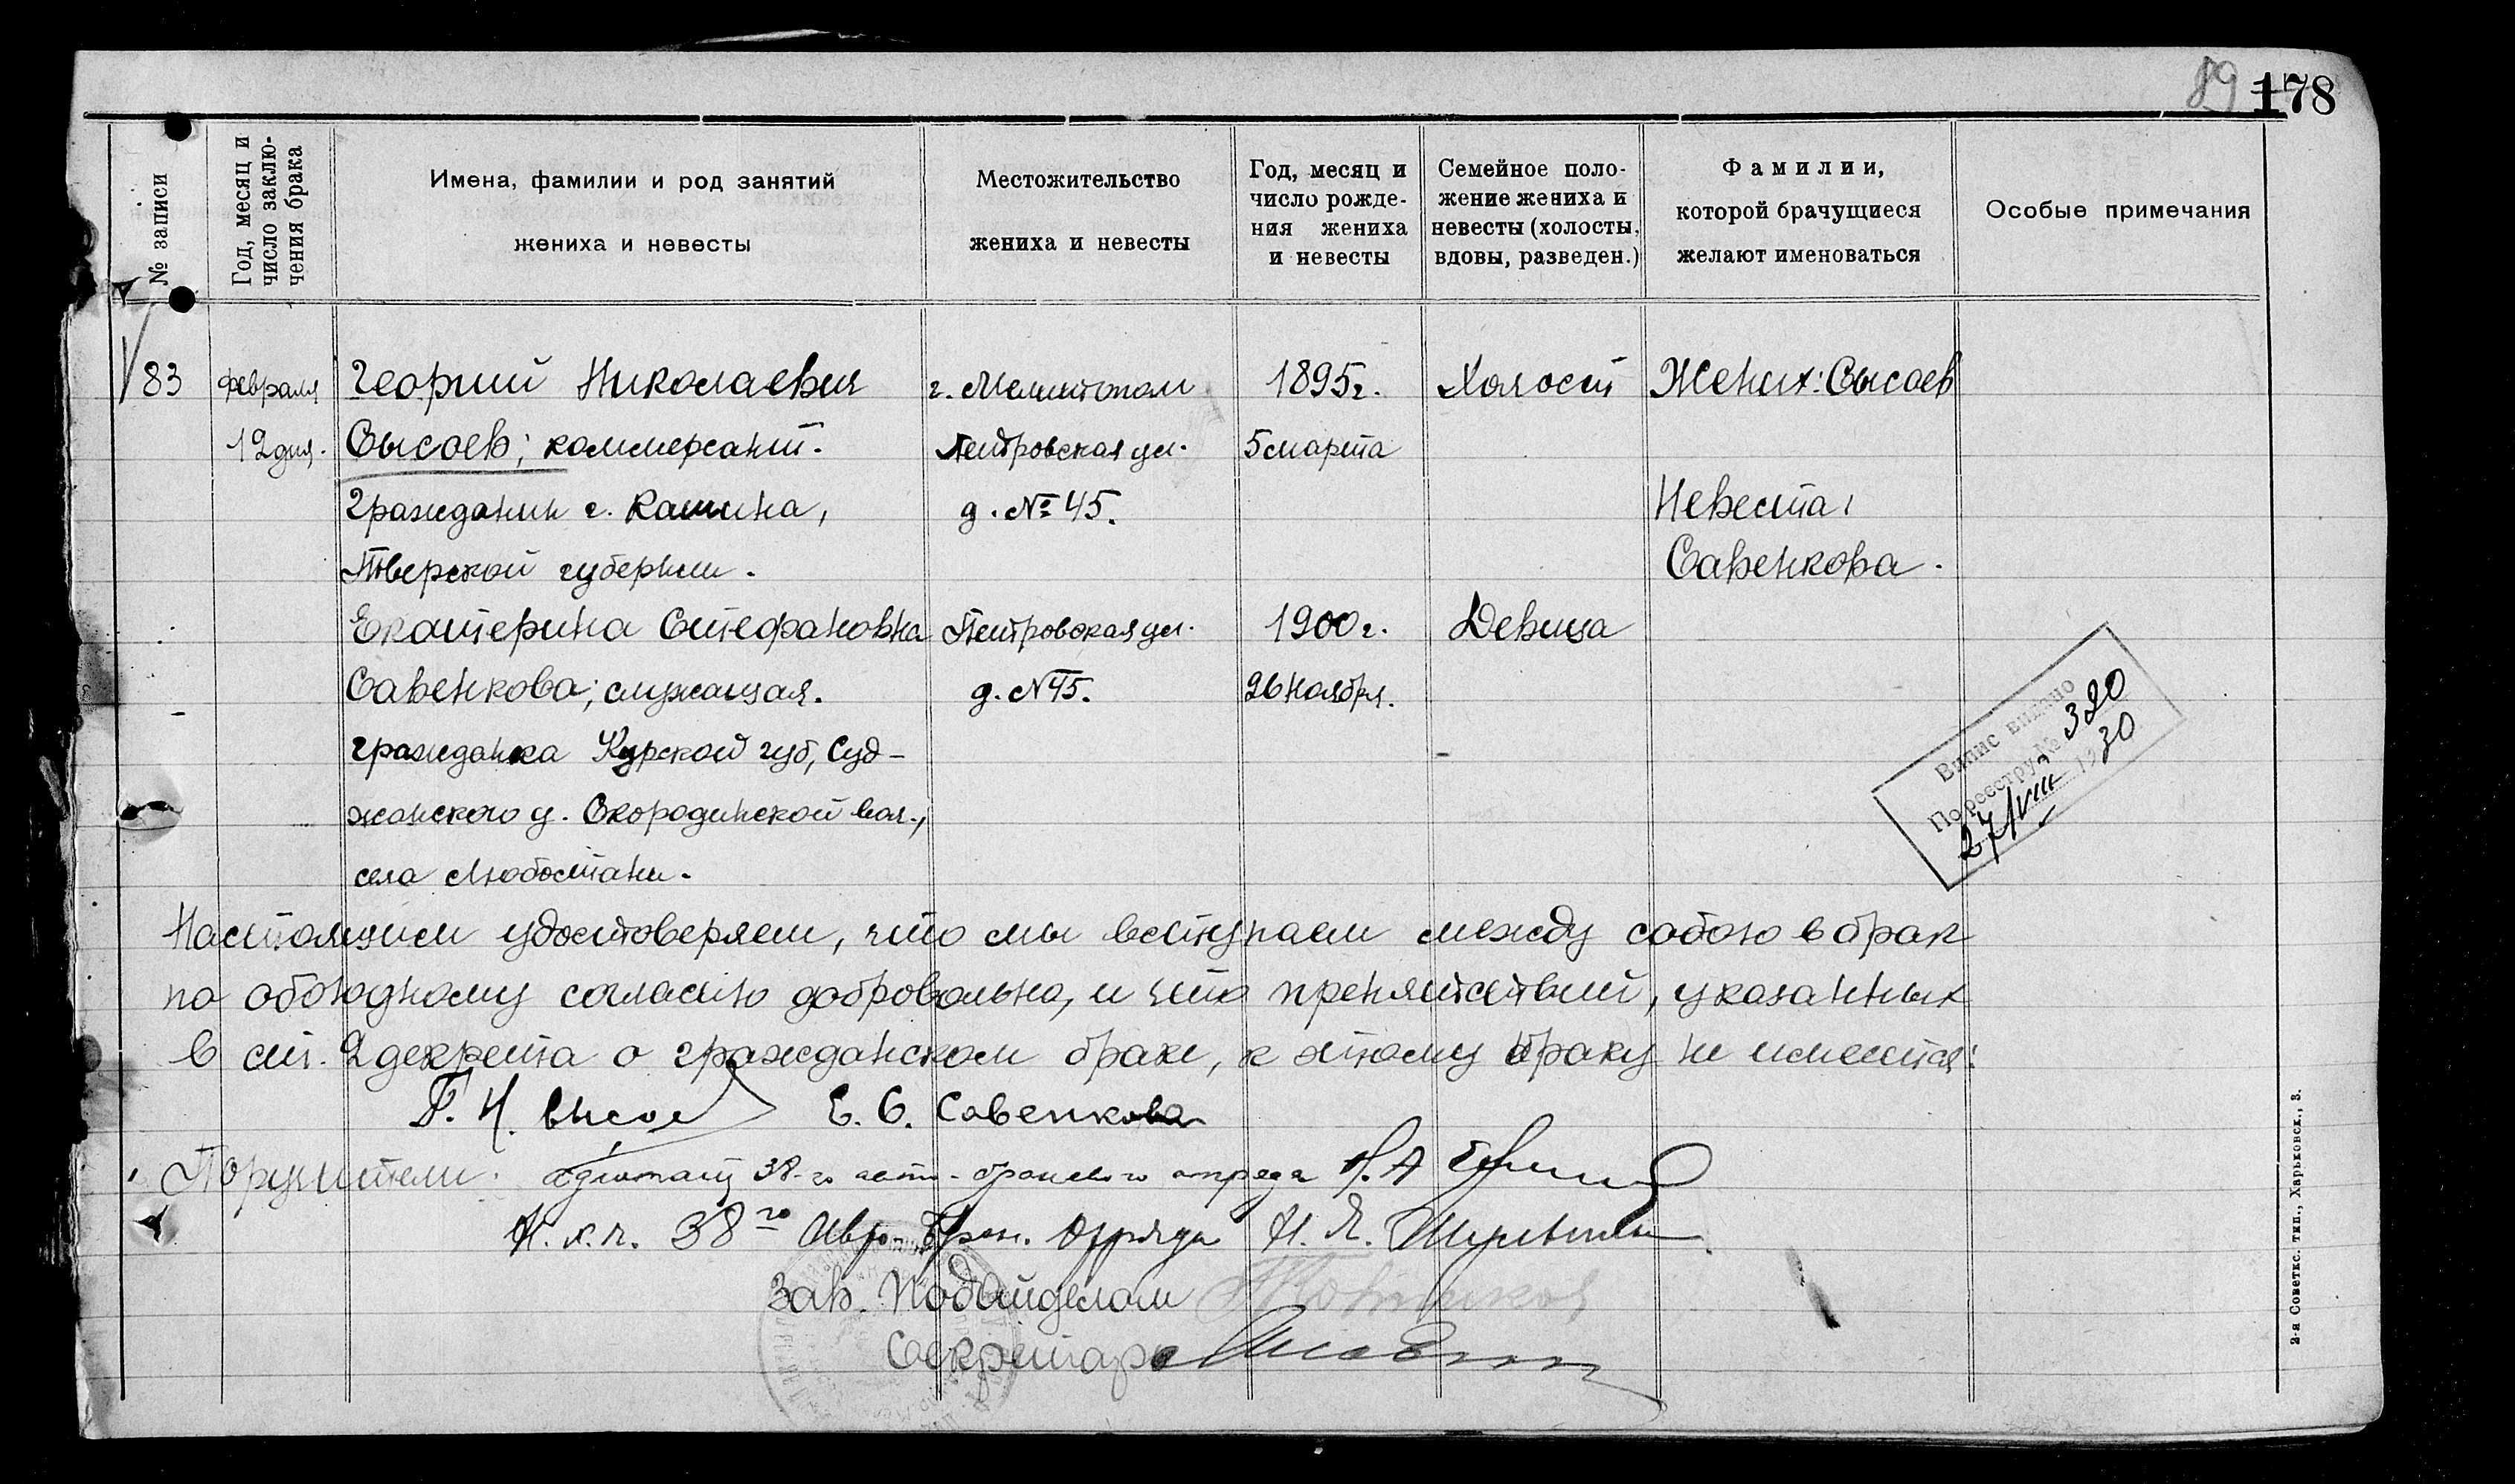 89 178
№ записи
Год, месяц и
число заклю-
чения брака
Имена, фамилии и род занятий
жениха и невесты
Местожительство
жениха и невесты
Год, месяц и
число рожде-
ния жениха
и невесты
Семейное поло-
жение жениха и
невесты (холосты,
вдовы, разведен.)
Фамилии,
которой брачущиеся
желают именоваться
Особые примечания
83 февраля Георгий Николаевич г. Мелитополь 1895г. Холост Жених: Сысоев
12 дня. Сысоев; коммерсант. Петровская ул. 5 марта
гражданин г. Кашина, д. № 45. Невеста:
Тверской губернии. Савенкова.
Екатерина Стефановна Петровская ул. 1900 г. Девица
Савенкова; служащая. д. N 45. 26 Ноября.
гражданка Курской губ, Суд-
жанского у. Скородинской вол.,
села Любостани.
Випис видано
По реєстру № 320
27/VIII 1930
Настоящим удостоверяем, что мы вступаем между собою в брак
по обоюдному согласию добровольно, и что препятствий, указанных
в ст. 2 декрета о гражданском браке, к этому браку не имеется:
Г. Н. Сысоев Е. С. Савенкова
Поручители: адъютант 38-го авто-броневого отряда
38го Авто-Брон. Отряда Н. Я.
Зав. Подотделом
Секретарь
2-я Советск. тип., Харьковск., 3.